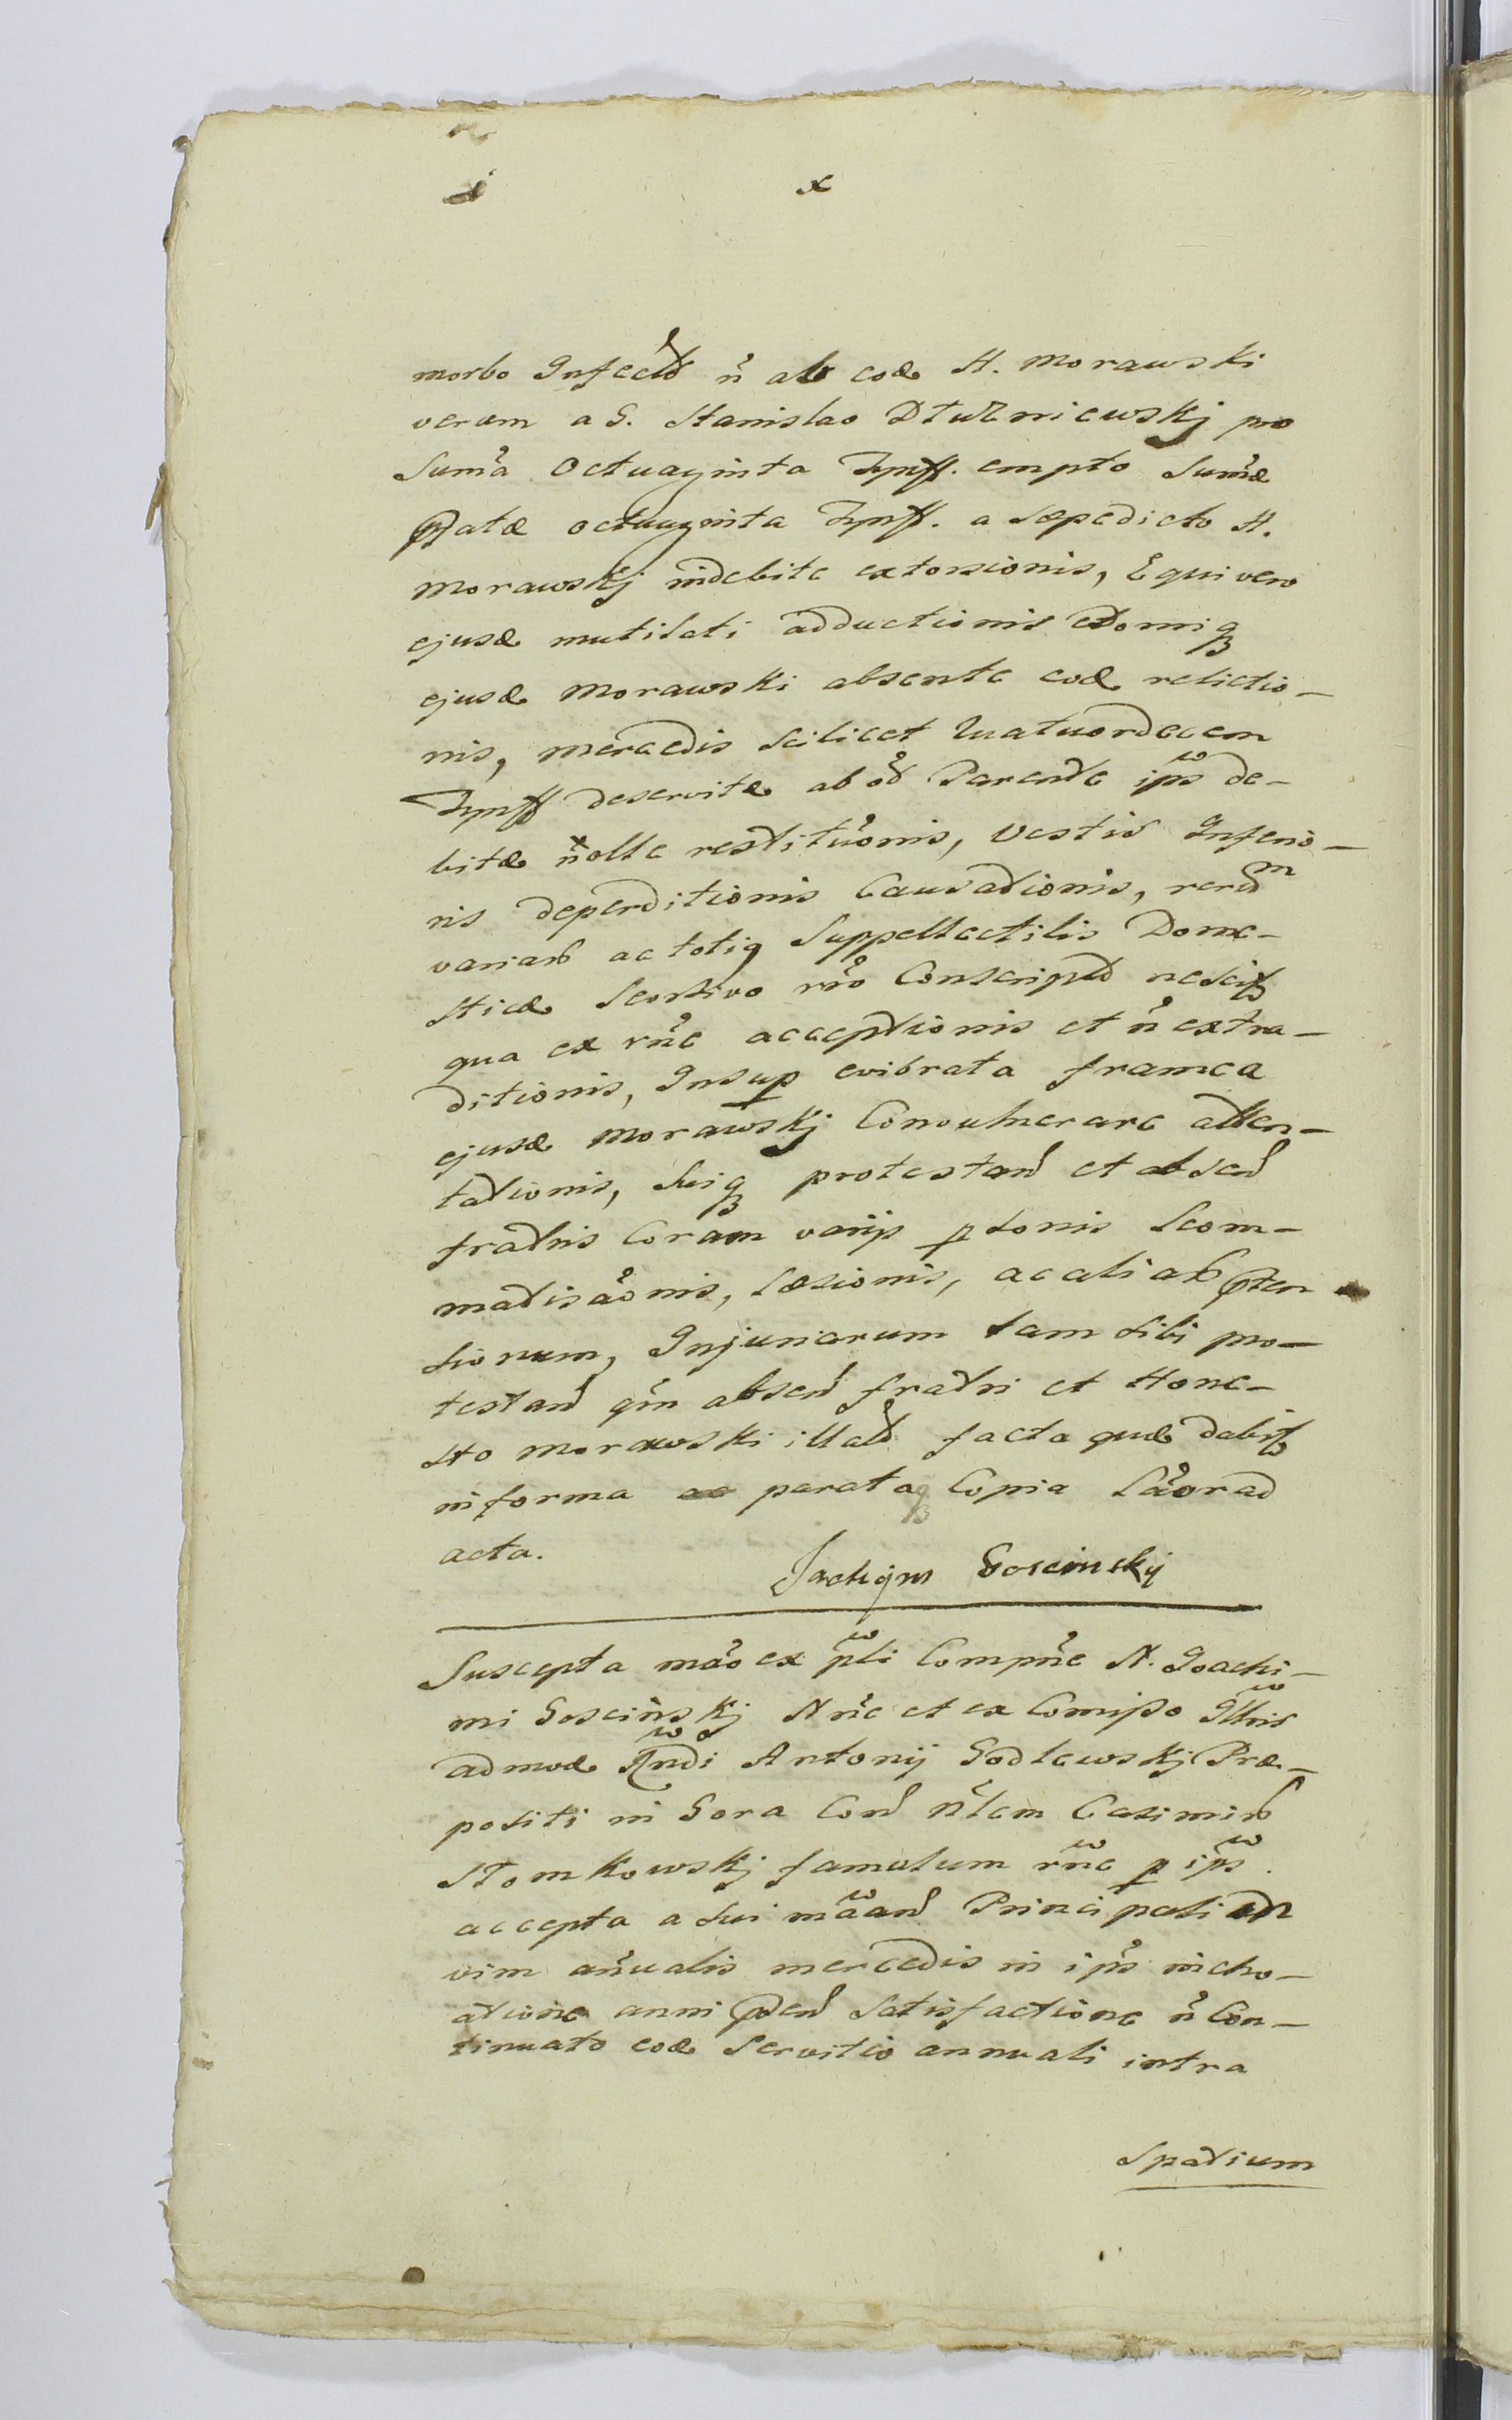 x
morbo Infecto n̄ ab eod H. Morawski
verum a G. Stanislao Dłużniewskj pro
Sum̄a Octuaginta Tynff. empto Sum̄æ
pfatæ octuaginta Tynff. a Sæpedicto H.
Morawskj indebite extorsionis, Equi vero
ejusd mutilati adductionis Domiq
ejusd Morawski absente eod relictio-
nis, mercedis scilicet Quatuordecem
Tynff deservitæ ab Parente ipso de-
bitæ n̄olle restitūonis, vestis Inferio-
ris deperditionis Causationis, rerum
variar ac totiq Suppellectilis Dome-
sticæ Seorsivo rro Conscript nescit
qua ex rn̄e acceptionis et n̄ extra-
ditionis, Insup evibrata framea
ejusd Morawskj Convulnerare atten-
tationis, Suiq protestan et absen
fratris Coram varijs psonis Scom-
matisāonis, Læsionis, ac aliar pten
sionum, Injuriarum tam sibi pro-
testan qm absen fratri et Hone-
sto Morawski illat facta quæ dabit
in forma parataq Copia Lāor ad
acta.
Joachijm Goscinskij
Suscepta māo ex pli Compn̄e N. Joachi-
mi Goscinskj Nn̄e et ex Comisso Illris
admod Rndi Antonij Godlewskj Præ-
positi in Gora Con n̄lem Casimir
Słomkowskj famulum rn̄e p ips
accepta a sui māan Principali in
vim an̄ualis mercedis in ips incho-
atione anni pden Satisfactione n̄ Con-
tinuato eod Servitio annuali intra
Spatium